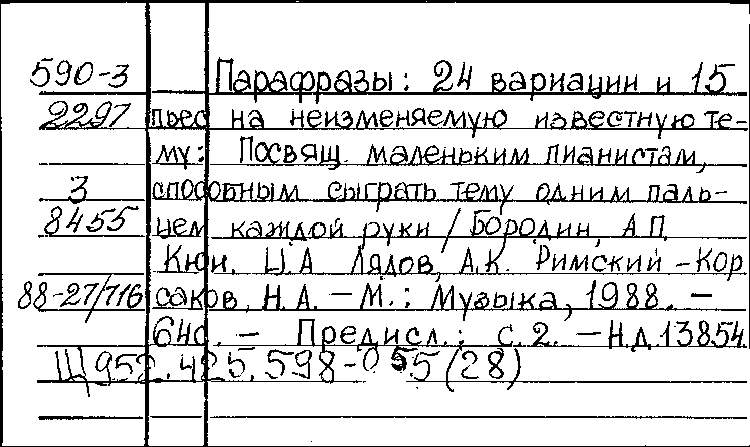 590-3 Парафразы: 24 вариации и 15
2297 пьес на неизменяемую известную те-
му: Посвящ. маленьким пианистам,
3 способным сыграть тему одним паль-
8455 цем каждой руки / Бородин, А.П.
Кюи, Ц.А. Лядов, А.К. Римский-Кор
88-27/716 саков, Н.А. — М.: Музыка, 1988. —
64с. — Предисл.: с. 2. — Н.д.13854.
Щ952.425.598-0 55(28)